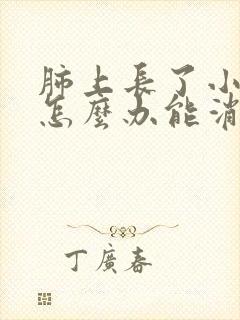 肺上長了小
怎麼办能消
丁廣春